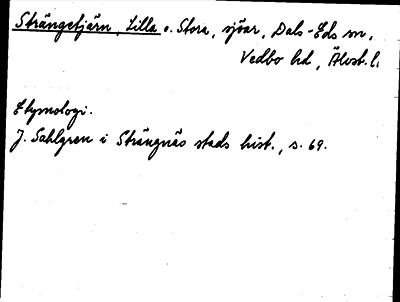 Strängetjärn, Lilla o. Stora, sjöar, Dals-Eds sn,
Vedbo hd, Älvsb. l.
Etymologi.
J. Sahlgren i Strängnäs stads hist., s. 69.